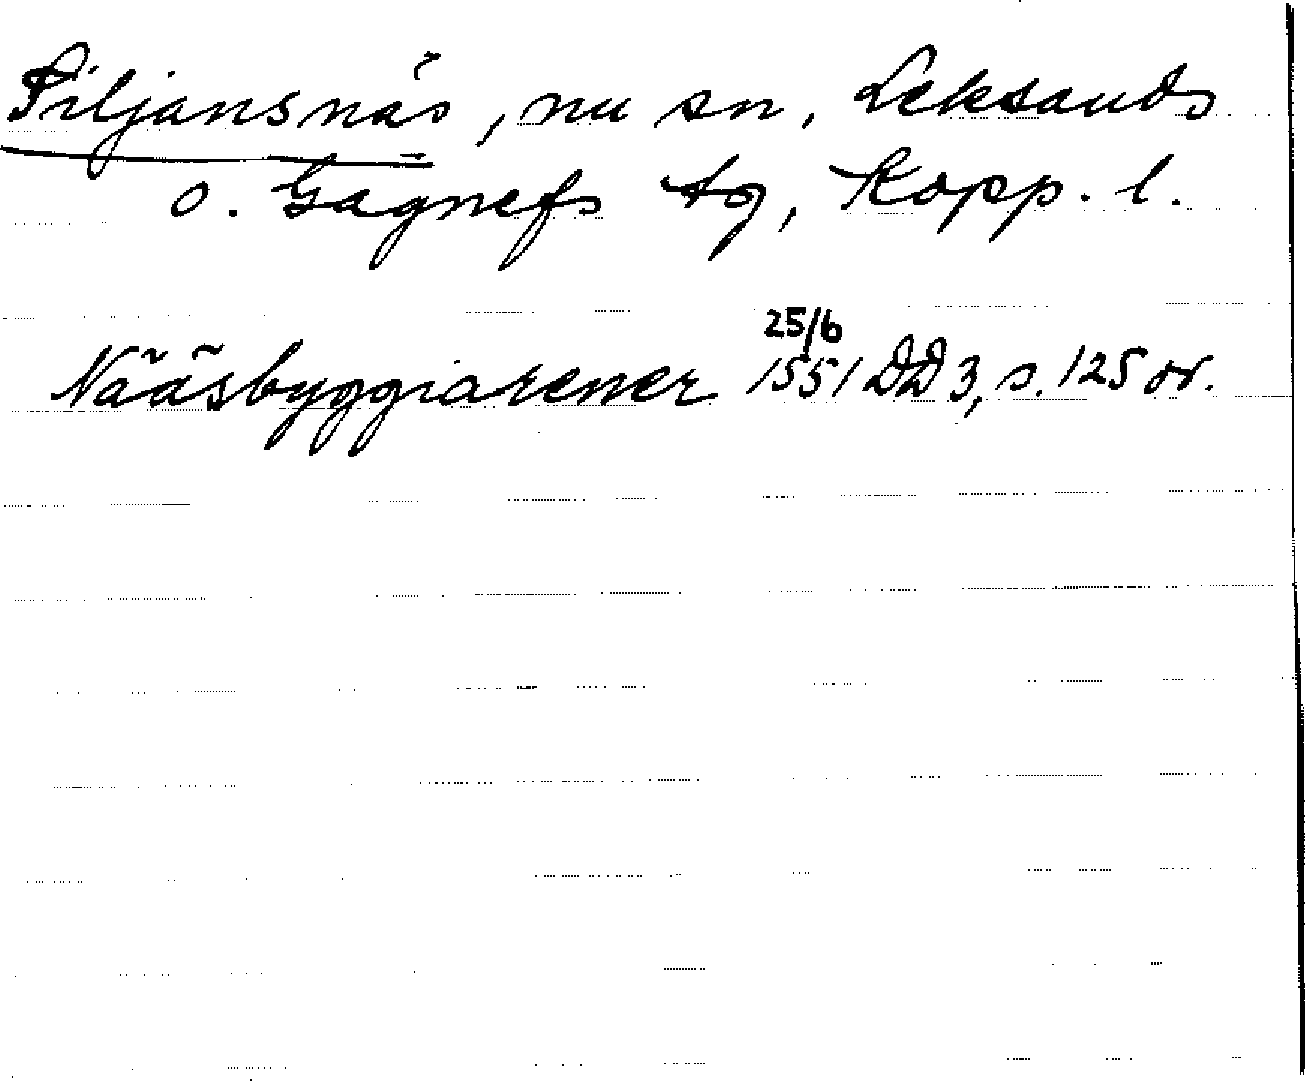 Siljansnäs, nu sn, Leksands
o. Gagnefs tg, Kopp. l.
25/6
Nääsbyggiarener 1551 DD 3, s. 125 or.